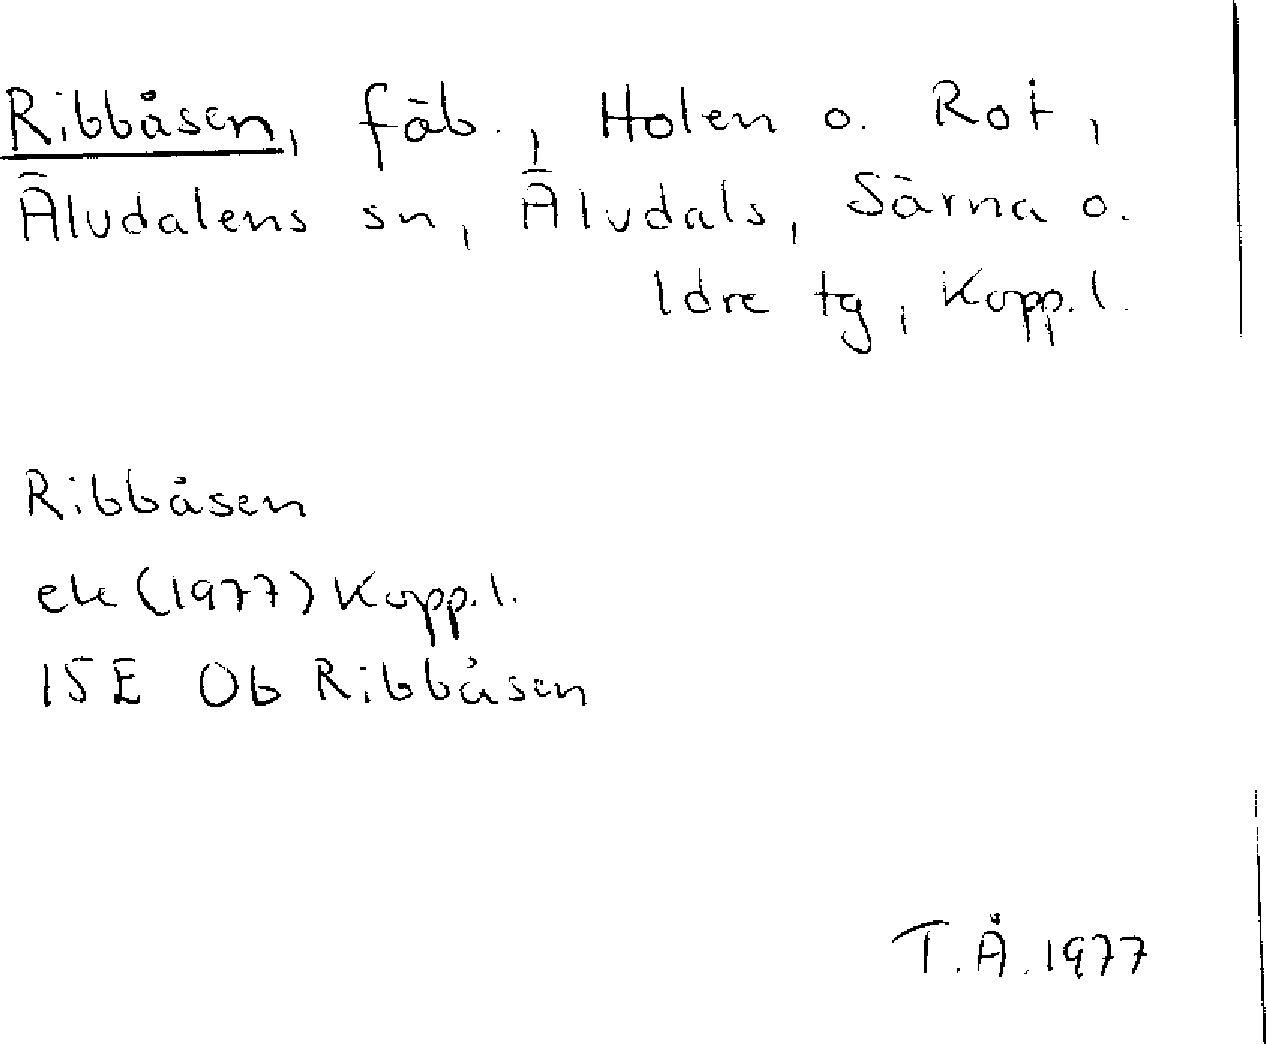 Ribbåsen, fäb., Holen o. Rot,
Älvdalens sn, Älvdals, Särna o.
Idre tg, Kopp.l.
Ribbåsen
ek (1977) Kopp.l.
15E 0b Ribbåsen
T.Å. 1977